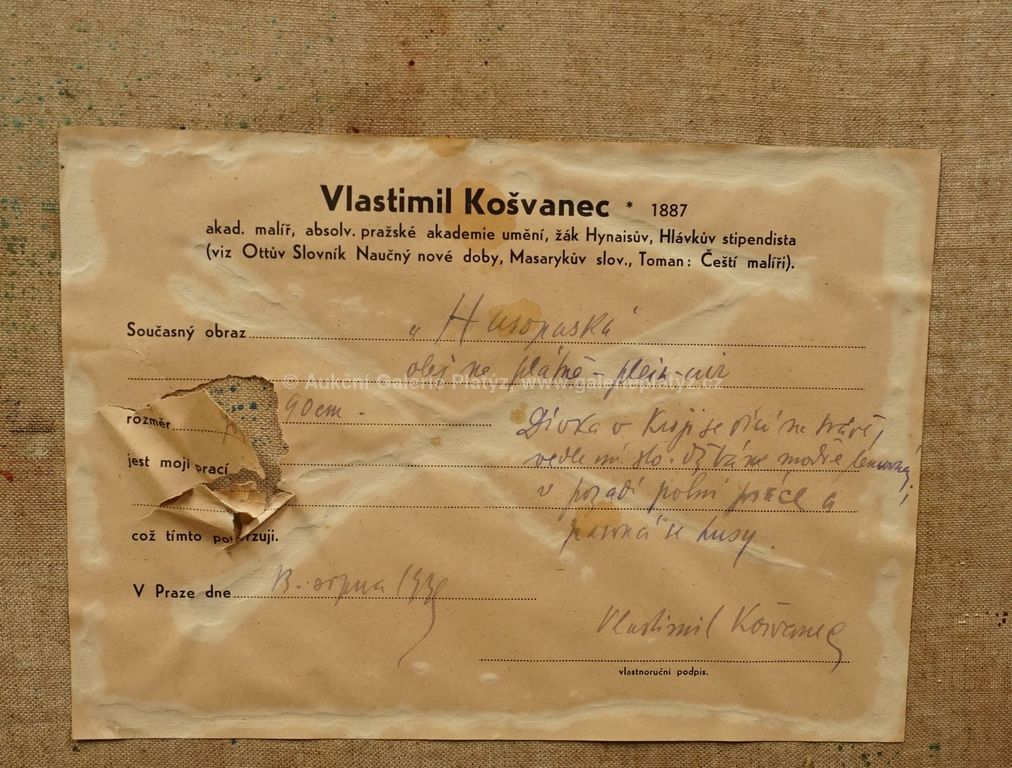 Vlastimil Košvanec * 1887
akad. malíř, absolv. pražské akademie umění, žák Hynaisův, Hlávkův stipendista
(viz Ottův Slovník Naučný nové doby, Masarykův slov., Toman: Čeští malíři).
Současný obraz „Husopaska"
olej na plátně - plein-air
© Aukční Galerie Platýz, www.galerieplatyz.cz
rozměr 90 cm.
Dívka v kroji se na trávě,
jest mojí prací
vedle džbán modře
v pozadí polní práce a
což tímto husy.
V Praze dne 13. srpna
Vlastimil Košvanec
vlastnoruční podpis.